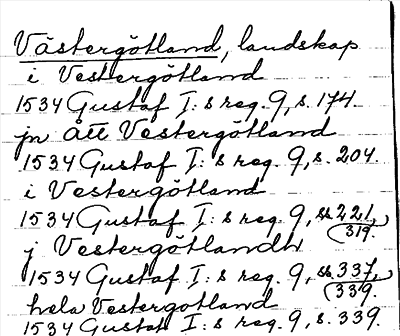 Västergötland, landskap
i Vestergötland
1534 Gustaf I:s reg. 9, s. 174.
jn Att Vestergötland
1534 Gustaf I:s reg. 9, s. 204.
i Vestergötland
1534 Gustaf I:s reg. 9, ss. 221,
319.
j Vestergötlandh
1534 Gustaf I:s reg. 9, ss. 337,
339.
hela Vestergötland
1534 Gustaf I:s reg. 9, s. 339.